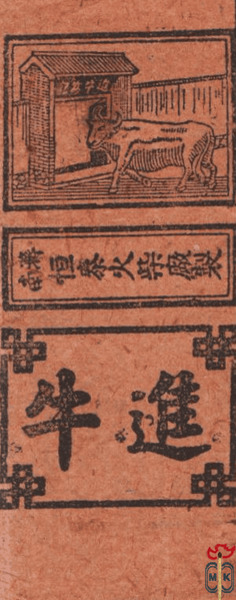 濟南恒泰火柴廠製
進牛
MK